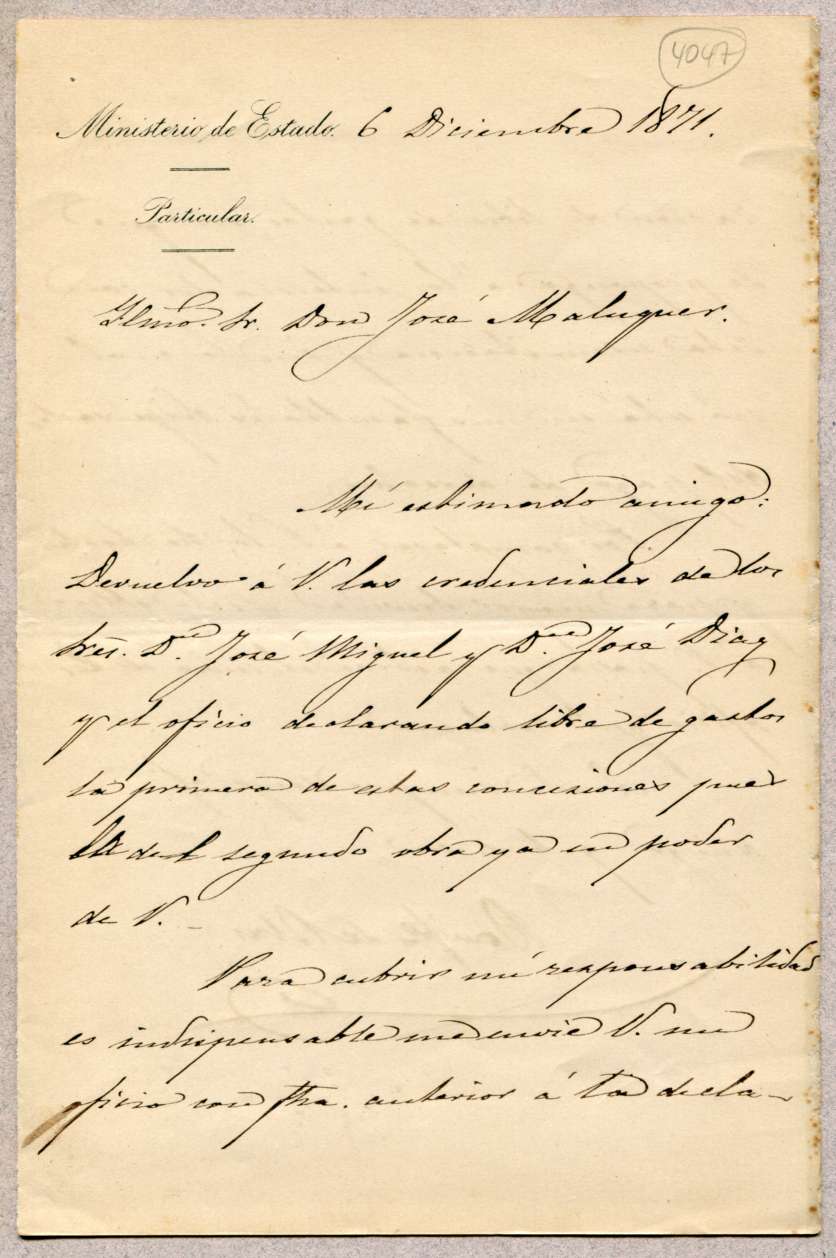 4047
Ministerio de Estado. 6 Diciembre 1871.
Particular.
Ilmo. Sr. Don José Maluquer.
Mi estimado amigo:
Devuelvo á V. las credenciales de los
Sres. Dn. José Miguel y Dn. José Diaz
y el oficio declarando libre de gastos
la primera de estas concesiones pues
la del segundo obra ya en poder
de V. –
Para cubrir mi responsabilidad
es indispensable me envie V. un
oficio con fha. anterior á la decla-